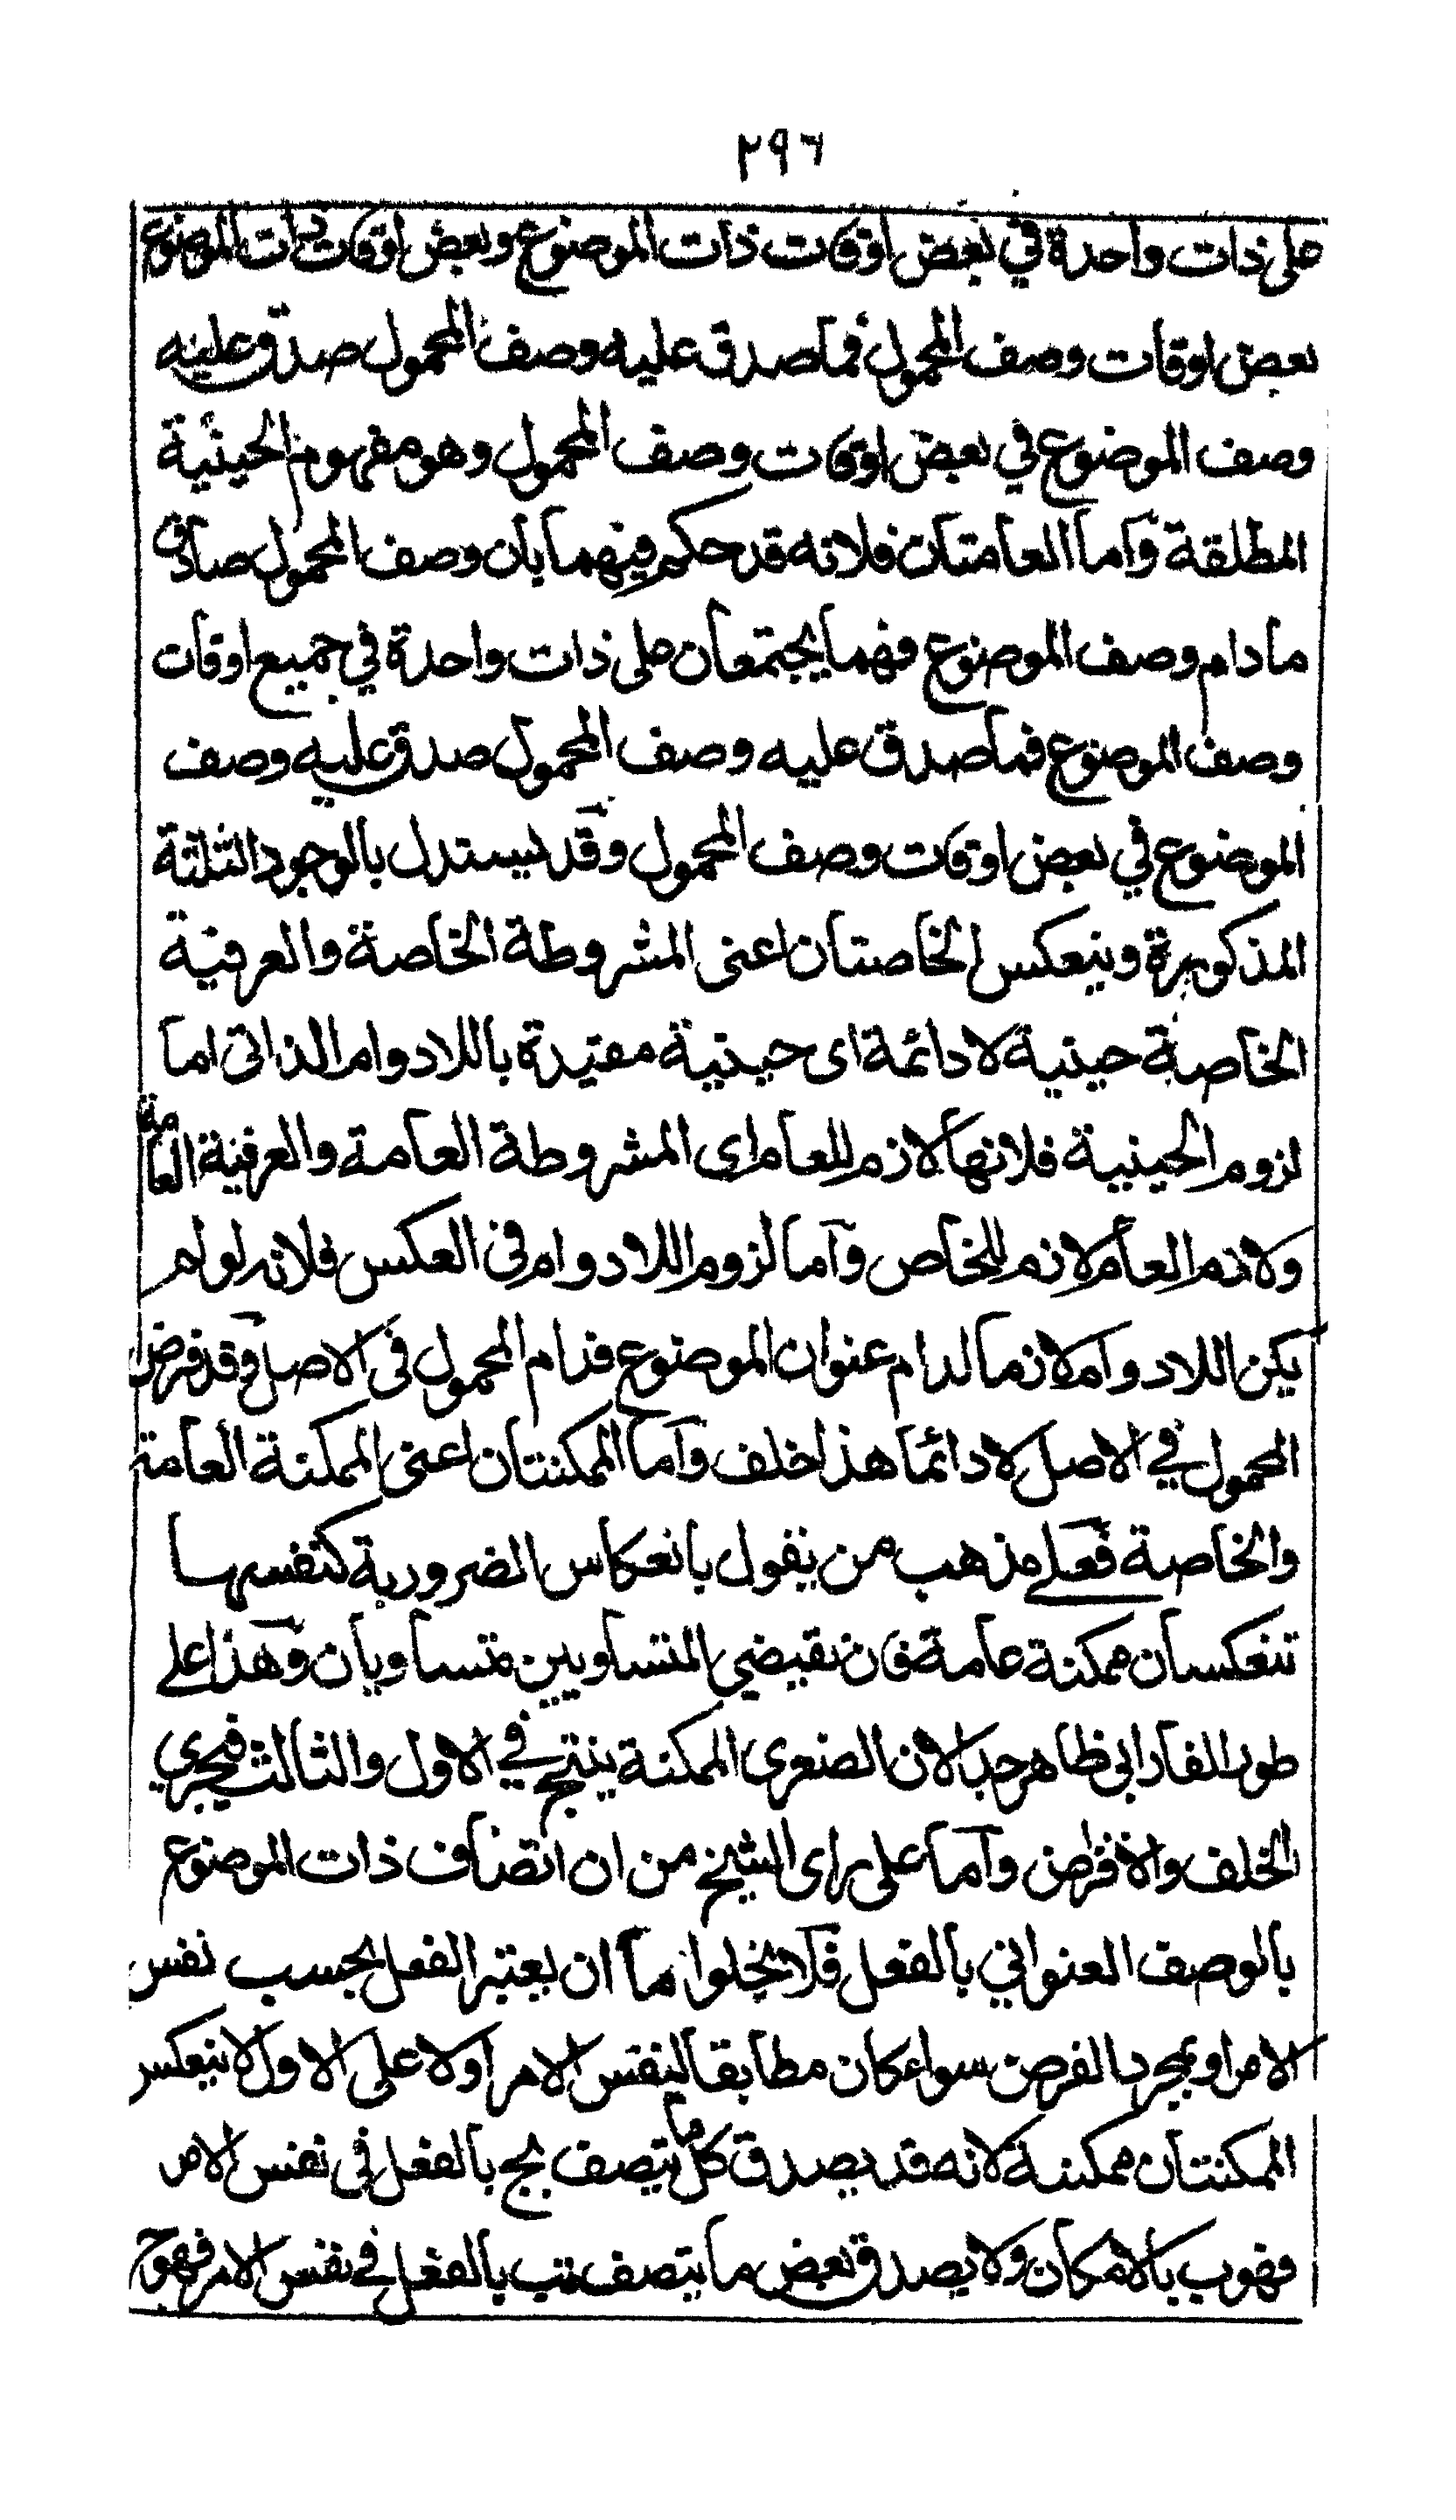 ٢٩٦
على ذات واحدة في بعض اوقات ذات الموضوع وبعض اوقات ذات الموضوع
بعض اوقات وصف المحمول فما صدق عليه وصف المحمول صدق عليه
وصف الموضوع في بعض اوقات وصف المحمول وهو مفهوم الحينية
المطلقة وآما العامتان فلانه قد حكم فيهما بان وصف المحمول صادق
ما دام وصف الموضوع فهما يجتمعان على ذات واحدة في جميع اوقات
وصف الموضوع فما صدق عليه وصف المحمول صدق عليه وصف
الموضوع في بعض اوقات وصف المحمول وقد يستدل بالوجود الثلثة
المذكورة وينعكس الخاصتان اعنى المشروطة الخاصة والعرفية
الخاصة حينية لا دائمة اى حينية مقيدة باللادوام الذاتى اما
لزوم الحينية فلانها لازم للعام اى المشروطة العامة والعرفية العامة
ولازم العام لازم للخاص وآما لزوم اللادوام فى العكس فلانه لو لم
يكن اللادوام لازما لدام عنوان الموضوع فدام المحمول فى الاصل وقد فرض
المحمول في الاصل لا دائما هذا خلف وآما الممكنتان اعنى الممكنة العامة
والخاصة فعلے مذهب من يقول بانعكاس الضرورية كنفسها
تنعكسان ممكنة عامة فان نقيضي المتساويين متساويان وهذا علے
طور الفارابى ظاهر جدا لان الصغرى الممكنة ينتج في الاول والثالث فيجري
الخلف والافتراض وآما على راى الشيخ من ان اتصاف ذات الموضوع
بالوصف العنواني بالفعل فلا يخلوا ما ان يعتبر الفعل بحسب نفس
الامر او بمجرد الفرض سواء كان مطابقا لنفس الامر اولا على الاول لا ينعكس
الممكنتان ممكنة لانه قد يصدق كل ما يتصف بج بالفعل فى نفس الامر
فهو ب بالامكان ولا يصدق بعض ما يتصف بب بالفعل في نفس الامر فهو ج